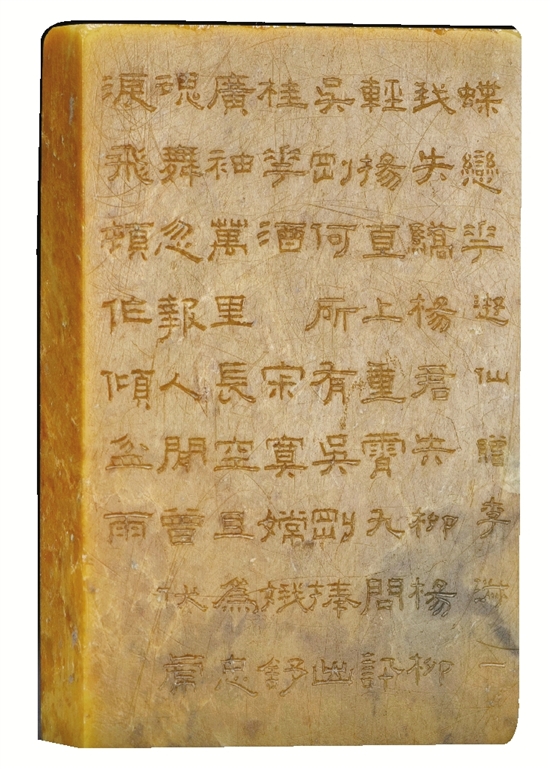 蝶戀華遊仙贈李淑一
我失驕楊君失柳楊柳
輕揚直上重霄九問訊
吳剛何所有吳剛捧出
桂華酒 寂寞嫦娥舒
廣袖萬里長空且為忠
魂舞忽報人間曾伏虎
淚飛頓作傾盆雨